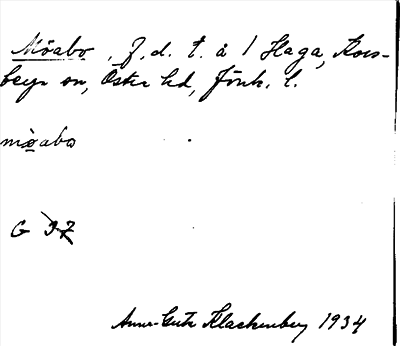 Möabo, f. d. t. å 1 Haga, Kors-
berga sn, Östra hd, Jönk. l.
möabo
G 37
Anna-Greta Klackenberg 1934